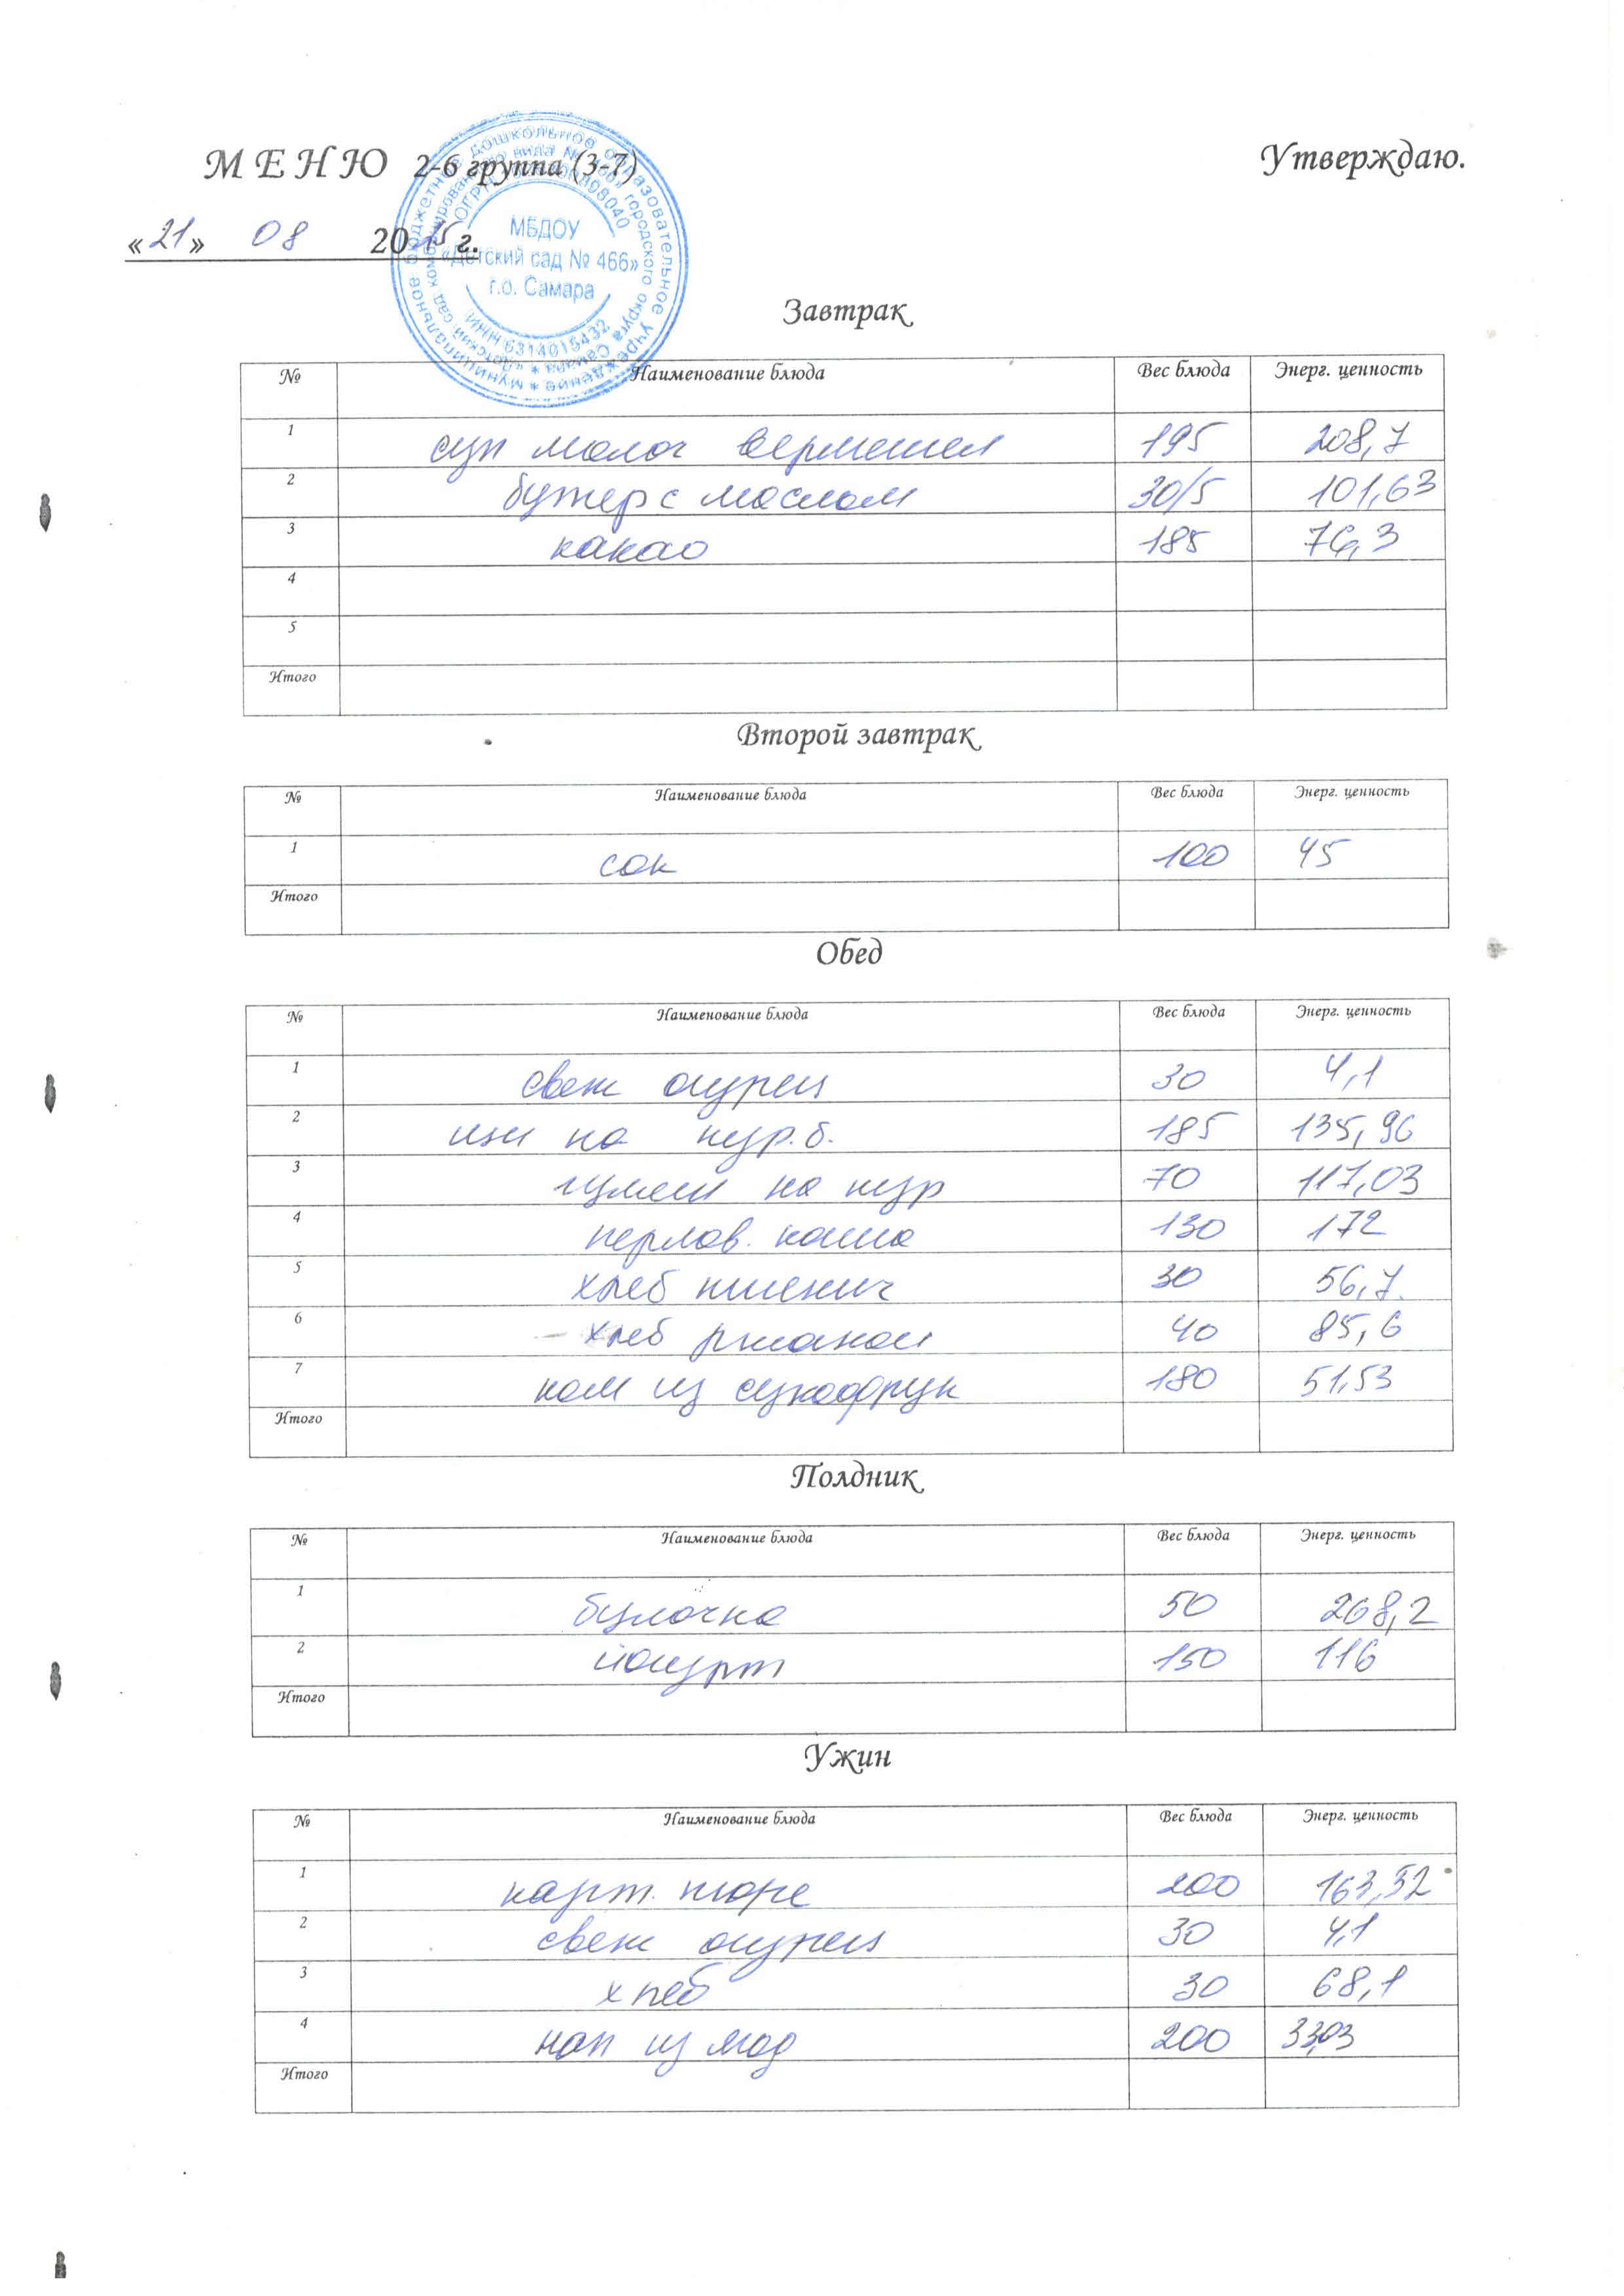 М Е Н Ю 2-6 группа (3-7) Утверждаю.
«21» 08 2025 г.
муниципальное бюджетное дошкольное образовательное учреждение
МБДОУ
«Детский сад № 466»
г.о. Самара
ИНН 6314015432
Завтрак
№ Наименование блюда Вес блюда Энерг. ценность
1 суп молоч вермешел 195 208,7
2 бутер с маслом 30/5 101,63
3 какао 185 76,3
4
5
Итого
Второй завтрак
№ Наименование блюда Вес блюда Энерг. ценность
1 сок 100 45
Итого
Обед
№ Наименование блюда Вес блюда Энерг. ценность
1 свеж огурец 30 4,1
2 щи на кур.б. 185 135,96
3 гуляш из кур 70 117,03
4 перлов. каша 130 172
5 хлеб пшенич 30 56,7
6 хлеб ржаной 40 85,6
7 ком из сухофрук 180 51,53
Итого
Полдник
№ Наименование блюда Вес блюда Энерг. ценность
1 булочка 50 268,2
2 йогурт 150 116
Итого
Ужин
№ Наименование блюда Вес блюда Энерг. ценность
1 карт. пюре 200 163,52
2 свеж огурец 30 4,1
3 хлеб 30 68,1
4 нап из ягод 200 33,03
Итого